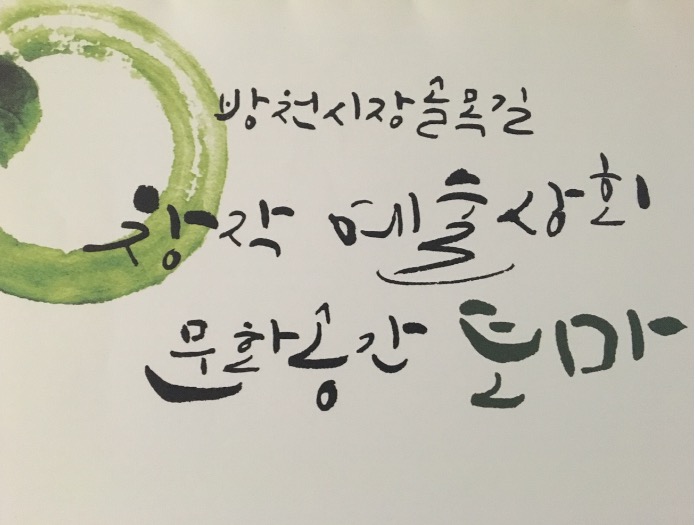 방천시장골목길
창작 예술상회
문화공간 토마